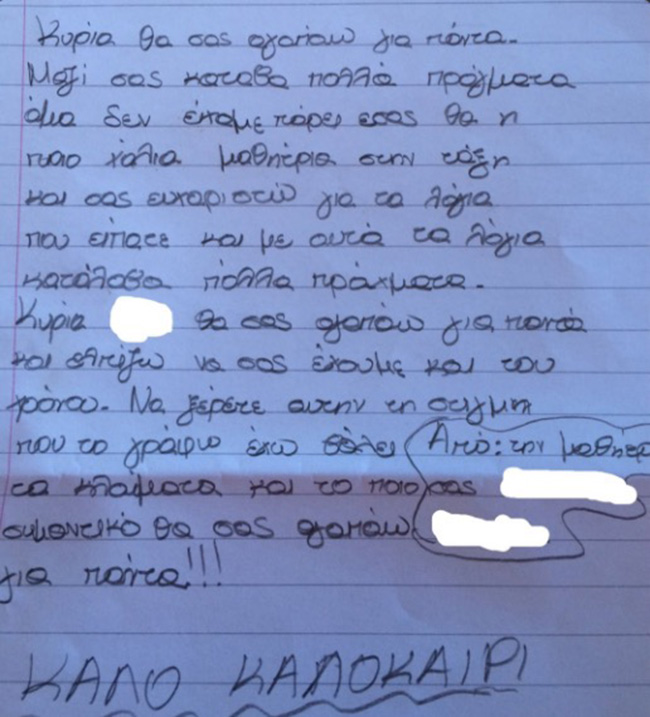 Κυρία θα σας αγαπάω για πάντα.
Μαζί σας καταβα πολλά πράγματα
άμα δεν έχαμε πάρει εσας θα η
ποιο χάλια μαθήτρια στην τάξη
και σας ευχαριστώ για τα λόγια
που είπατε και με αυτά τα λόγια
κατάλαβα πολλα πράχματα.
Κυρία θα σας αγαπάω για παντά
και ελπίζω να σας έχουμε και του
χρόνου. Να ξέρετε αυτήν τη στιγμη
που το γράφω έχω βάλει
τα κλάματα και το ποιο
συμαντικό θα σας αγαπάω
για πάντα!!!
Από: την μαθήτρ
σας
ΚΑΛΟ ΚΑΛΟΚΑΙΡΙ